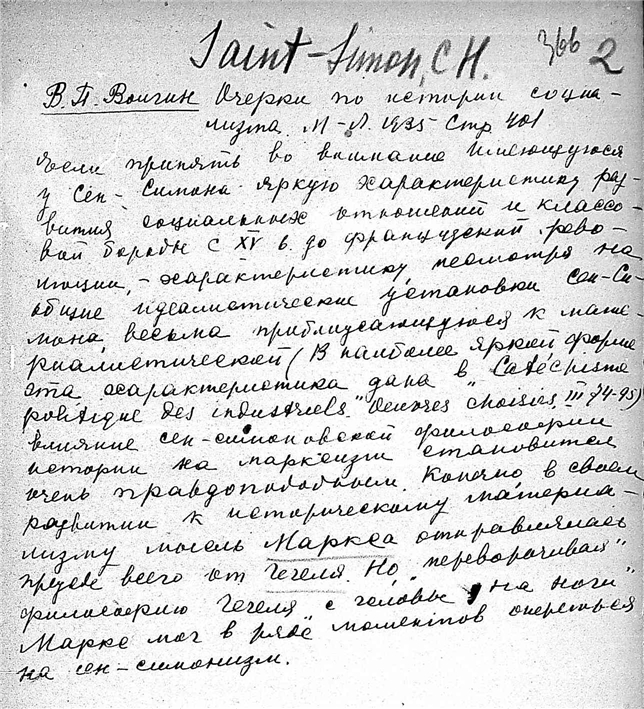 Saint-Simon, C H. 366 2
В. П. Волгин Очерки по истории социа-
лизма. М-Л. 1935 Стр 401
Если принять во внимание имеющуюся
у Сен-Симона яркую характеристику раз-
вития социальных отношений и классо-
вой борьбы с XV в. до французской рево-
люции, - характеристику, несмотря на
общие идеалистические установки Сен-Си-
мона, весьма приближающуюся к мате-
риалистической (В наиболее яркой форме
эта характеристика дана в "Catéchisme
politique des industriels" Oeuvres choisies, III 74-95)
влияние сен-симоновской философии
истории на марксизм становится
очень правдоподобным. Конечно в своем
развитии к историческому материа-
лизму мысль Маркса отправлялась
прежде всего от Гегеля. Но, "переворачивая"
философию Гегеля с головы "на ноги"
Маркс мог в ряде моментов опереться
на сен-симонизм.